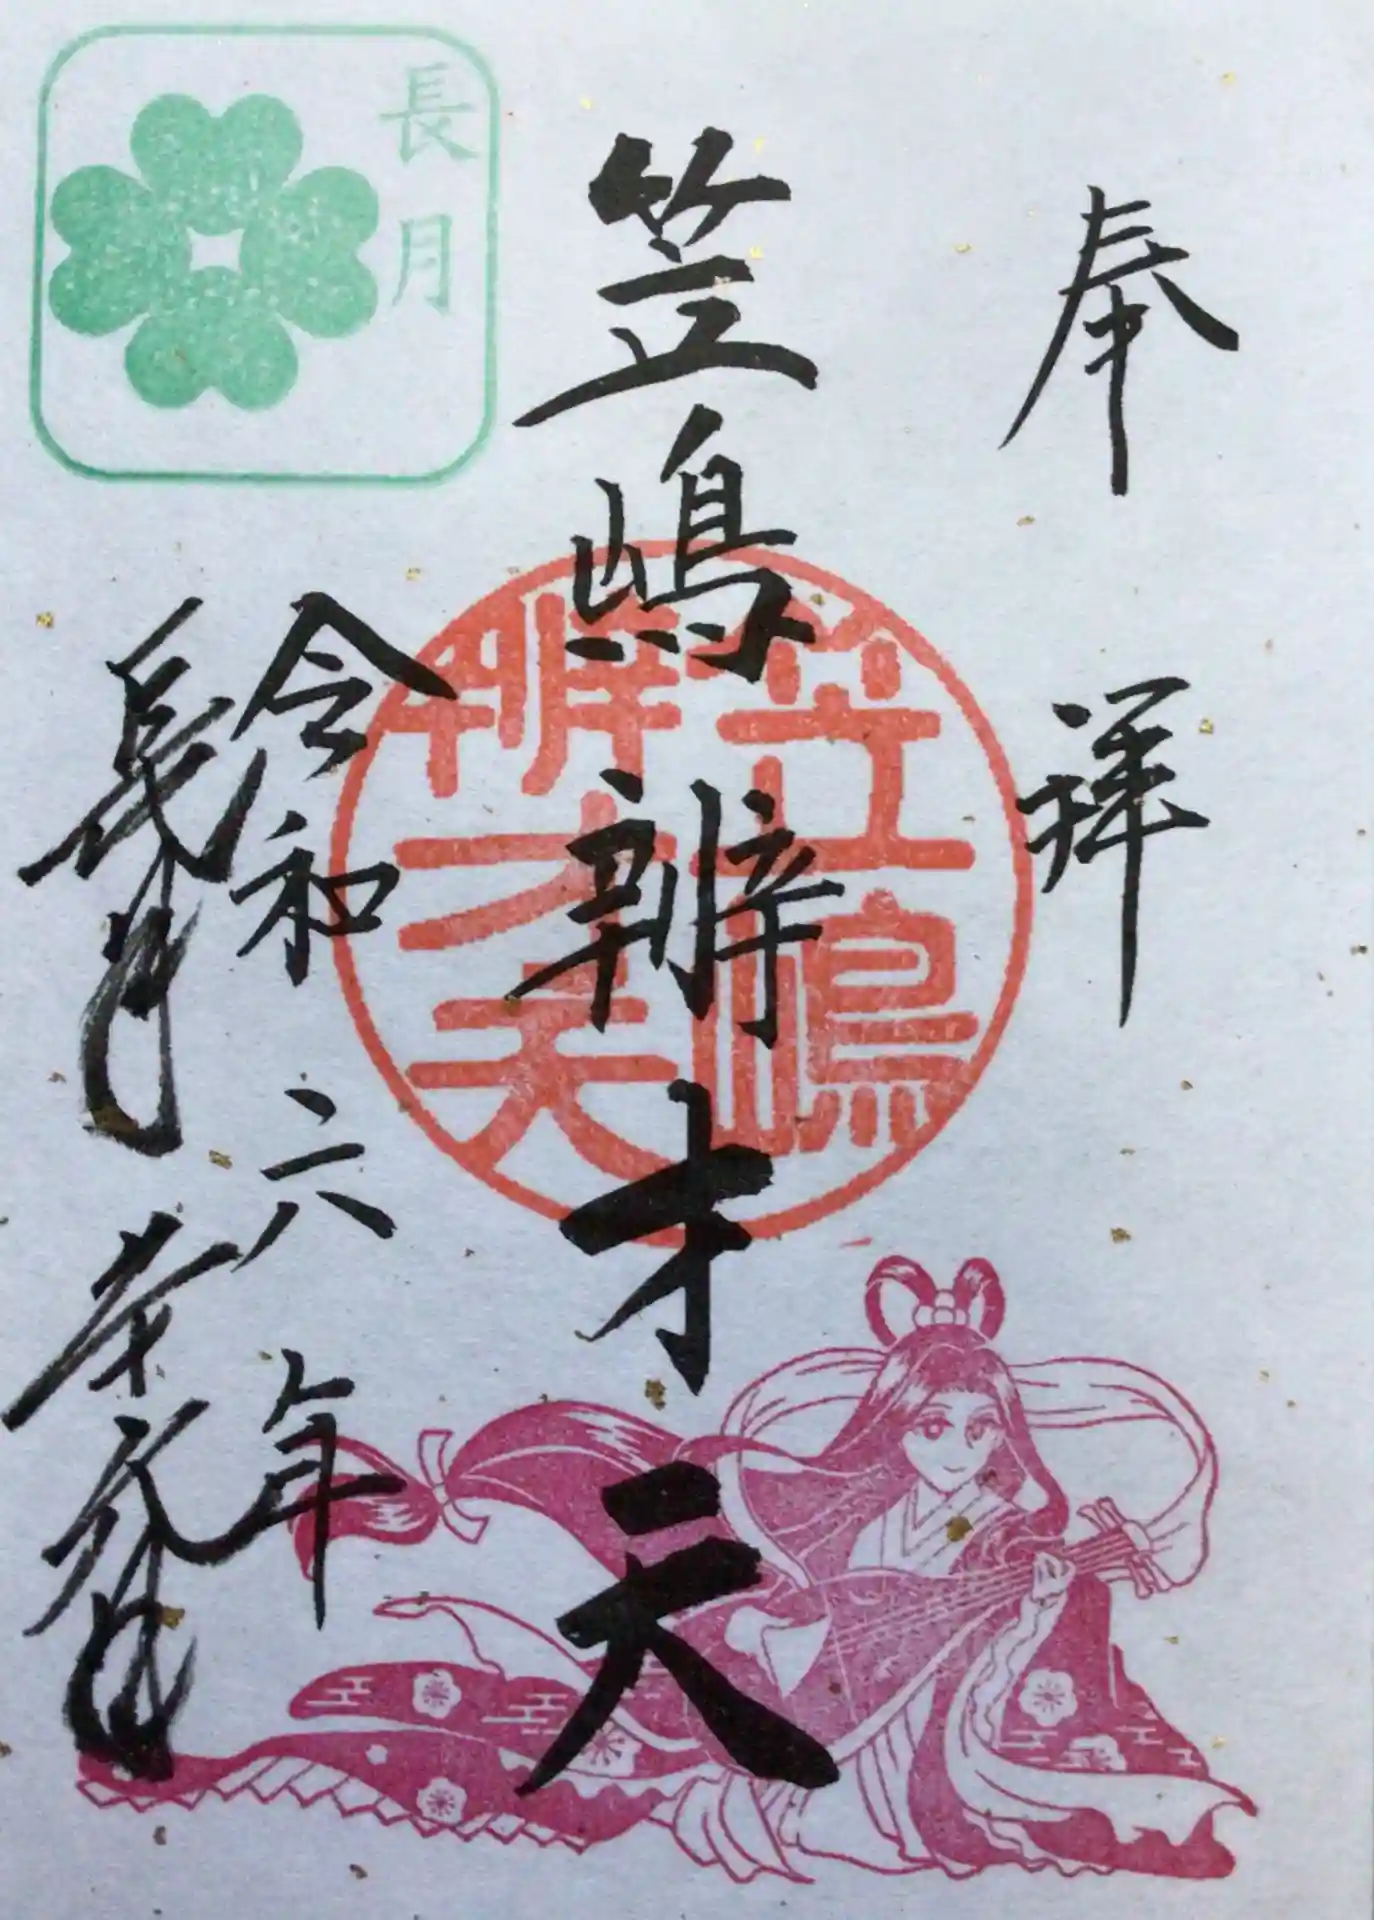 奉拝
笠嶋辨才天
笠嶋
辨才天
令和六年
長月
長月